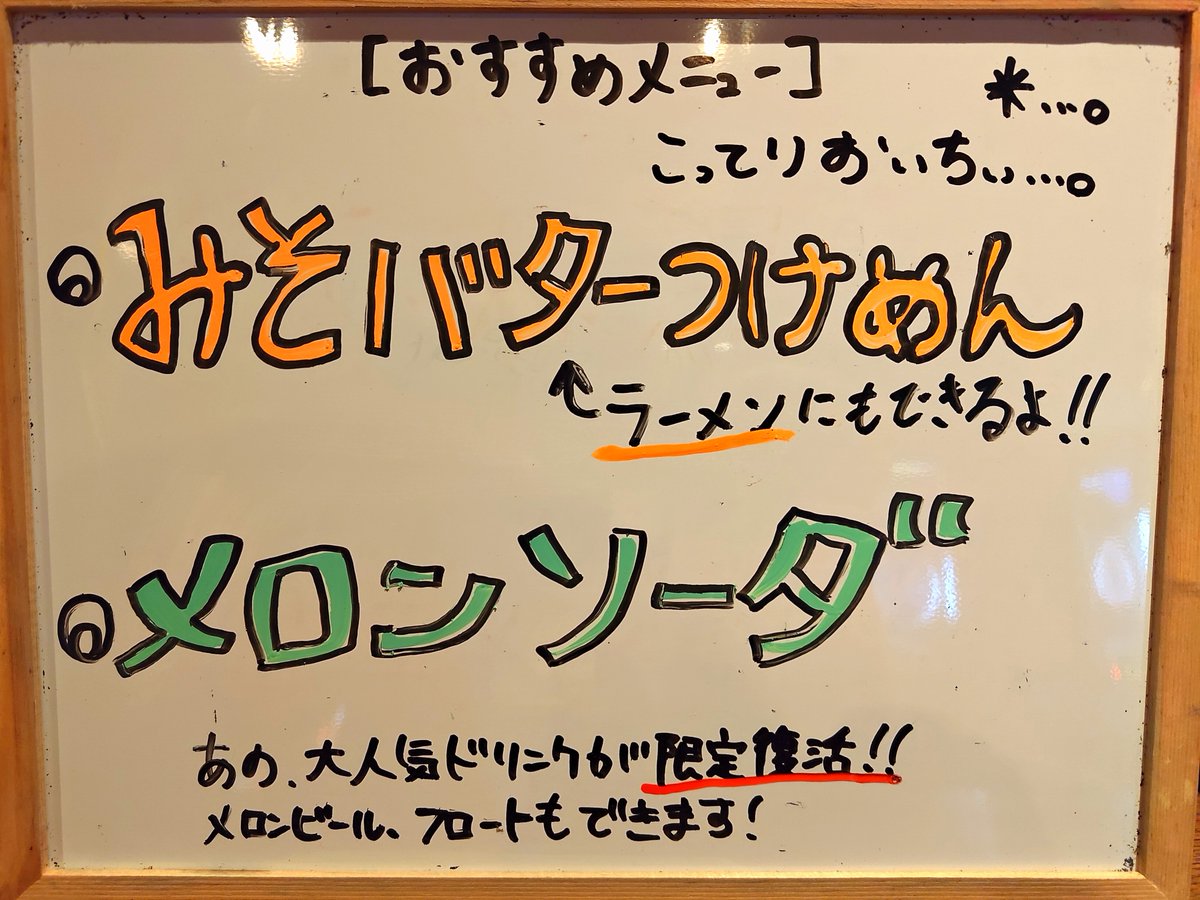 [おすすめメニュー]
*…。
こってりおいちぃ…。
みそバターつけめん
↑ラーメンにもできるよ!!
メロンソーダ
あの、大人気ドリンクが限定復活!!
メロンビール、フロートもできます!